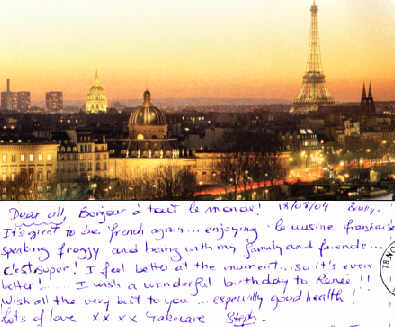 Dear all, Bonjour à tout le monde! 18/03/04
It's great to be french again... enjoying la cuisine française
speaking froggy and being with my family and friends...
C'est super! I feel better at the moment... so it's even
better!..... I wish a wonderful birthday to Renée!!
Wish all the very best to you... especially good health!
Lots of love x x x x Steph.